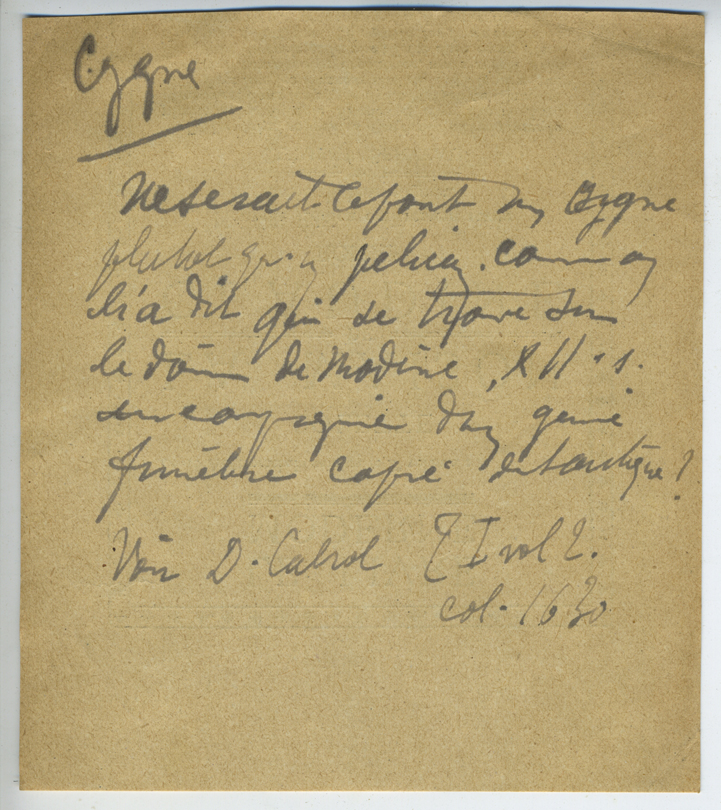 Cygne
Ne serait ce pas un cygne
plutot qu'un pelican. comme on
l'a dit qui se trouve sur
le dôme de Modène, XIIe s.
en compagnie d'un genie
funèbre copié de l'antique ?
Voir D. Cabrol T I vol 2.
col. 1630